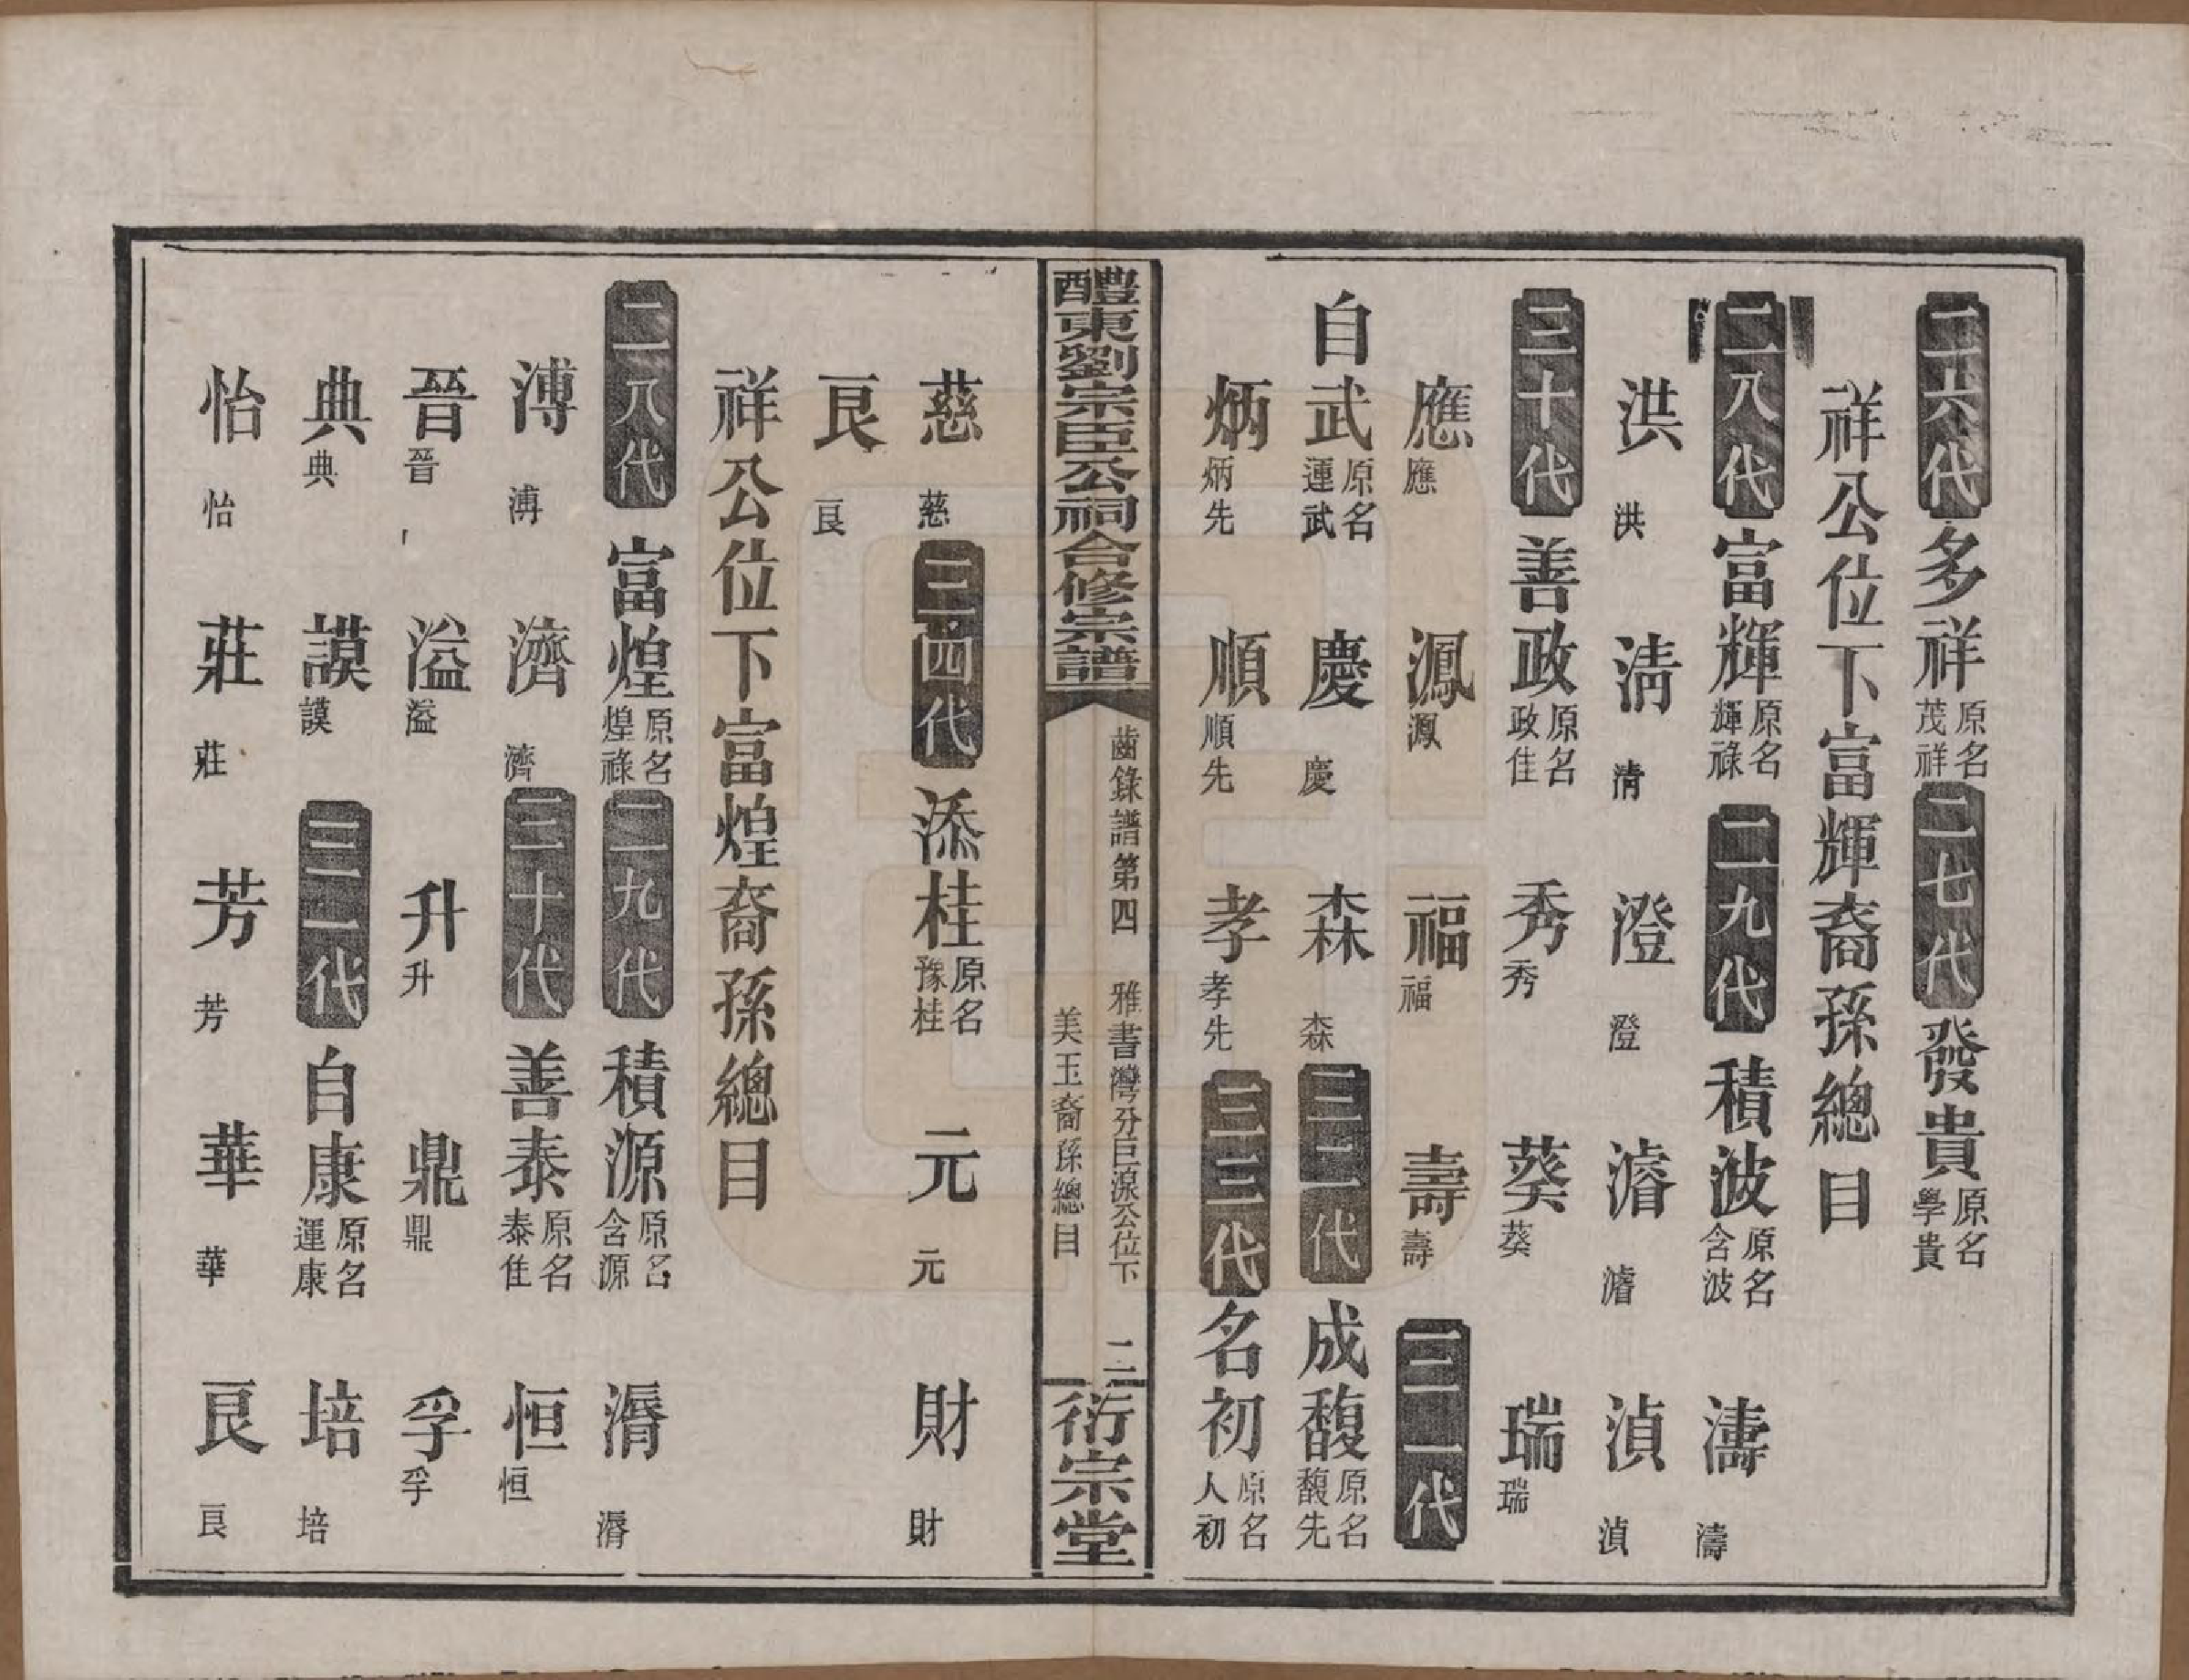 二六代多祥原名茂祥二七代發貴原名學貴
祥公位下富輝裔孫總目
二八代富輝原名輝祿二九代積波原名含波濤濤
洪洪清清澄澄濬濬湞湞
三十代善政原名政佳秀秀葵葵瑞瑞
應應鳳鳳福福壽壽三一代
自武原名運武慶慶森森三二代成馥原名馥先
炳炳先順順先孝孝先三三代名初原名人初
醴東劉宗臣公祠合修宗譜
齒錄譜第四 雅書灣分巨源公位下
美玉裔孫總目
二
衍宗堂
慈慈三四代添桂原名豫桂元元財財
良良
祥公位下富煌裔孫總目
二八代富煌原名煌祿二九代積源原名含源湣湣
溥溥濟濟三十代善泰原名泰佳恒恒
晉晉溢溢升升鼎鼎孚孚
典典謨謨三一代自康原名運康培培
怡怡莊莊芳芳華華良良